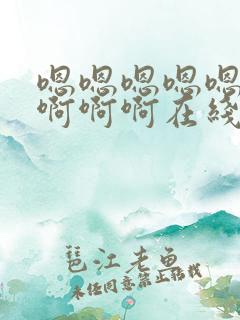 嗯嗯嗯嗯嗯
啊啊啊在线
琶江老鱼
未经同意禁止转载